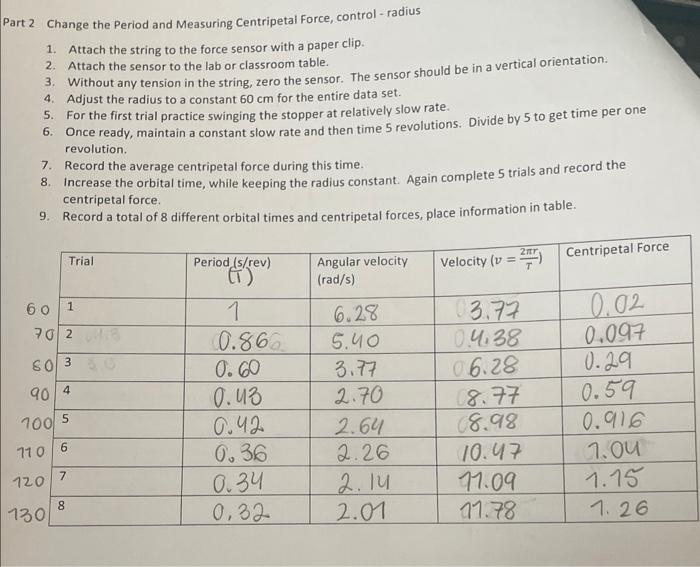 Part 2 Change the Period and Measuring Centripetal Force, control - radius
1. Attach the string to the force sensor with a paper clip.
2. Attach the sensor to the lab or classroom table.
3. Without any tension in the string, zero the sensor. The sensor should be in a vertical orientation.
4. Adjust the radius to a constant 60 cm for the entire data set.
5. For the first trial practice swinging the stopper at relatively slow rate.
6. Once ready, maintain a constant slow rate and then time 5 revolutions. Divide by 5 to get time per one
revolution.
7. Record the average centripetal force during this time.
8. Increase the orbital time, while keeping the radius constant. Again complete 5 trials and record the
centripetal force.
9. Record a total of 8 different orbital times and centripetal forces, place information in table.
Trial Period (s/rev) (T) Angular velocity (rad/s) Velocity (v = 2πr/T) Centripetal Force
60 1 1 6.28 3.77 0.02
70 2 0.86 5.40 4.38 0.097
80 3 0.60 3.77 6.28 0.29
90 4 0.43 2.70 8.77 0.59
100 5 0.42 2.64 8.98 0.916
110 6 0.36 2.26 10.47 1.04
120 7 0.34 2.14 11.09 1.15
130 8 0.32 2.01 11.78 1.26